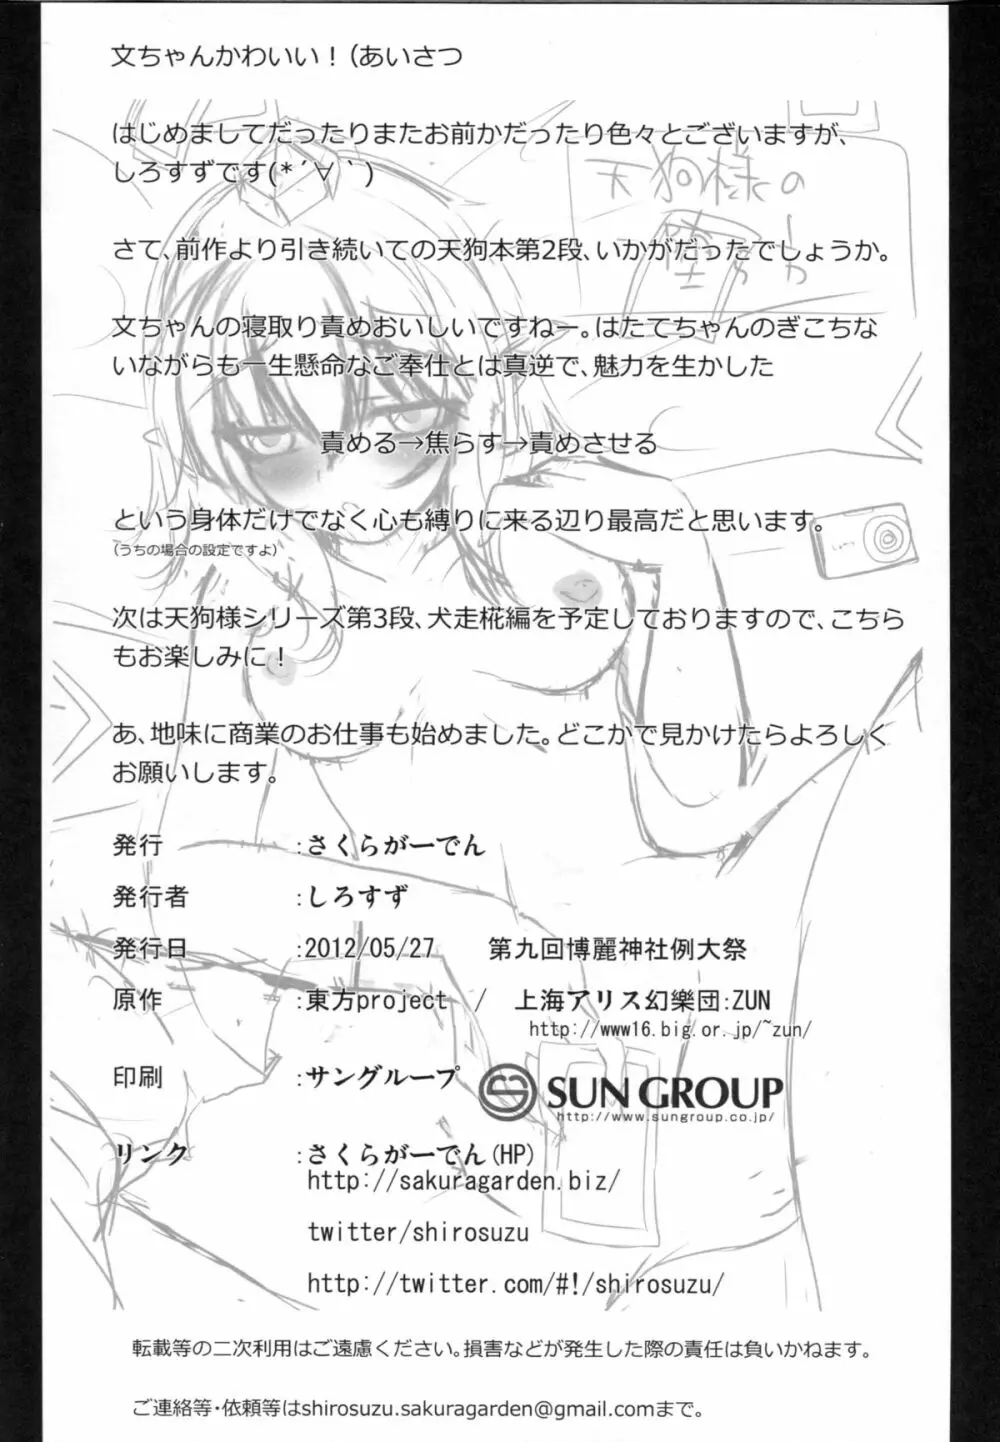 文ちゃんかわいい！（あいさつ
はじめましてだったりまたお前かだったり色々とございますが、
しろすずです(*´∀｀)
天狗様の
堕らしカ
さて、前作より引き続いての天狗本第2段、いかがだったでしょうか。
文ちゃんの寝取り責めおいしいですねー。はたてちゃんのぎこちな
いながらも一生懸命なご奉仕とは真逆で、魅力を生かした
責める→焦らす→責めさせる
という身体だけでなく心も縛りに来る辺り最高だと思います。
（うちの場合の設定ですよ）
次は天狗様シリーズ第3段、犬走椛編を予定しておりますので、こちら
もお楽しみに！
あ、地味に商業のお仕事も始めました。どこかで見かけたらよろしく
お願いします。
発行 ：さくらがーでん
発行者 ：しろすず
発行日 ：2012/05/27 第九回博麗神社例大祭
原作 ：東方project / 上海アリス幻樂団：ZUN
http://www16.big.or.jp/~zun/
印刷 ：サングループ SUN GROUP
http://www.sungroup.co.jp/
リンク ：さくらがーでん(HP)
http://sakuragarden.biz/
twitter/shirosuzu
http://twitter.com/#!/shirosuzu/
転載等の二次利用はご遠慮ください。損害などが発生した際の責任は負いかねます。
ご連絡等・依頼等はshirosuzu.sakuragarden@gmail.comまで。